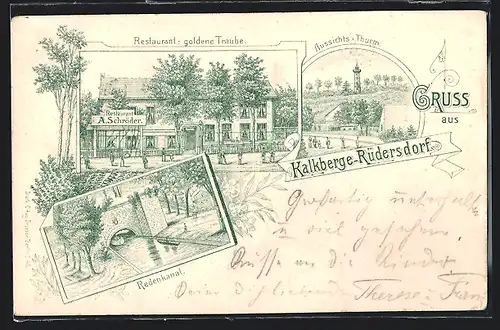 Restaurant: goldene Traube.
Aussichts-Thurm
Restaurant
A. Schröder.
GRUSS
aus
Kalkberge-Rüdersdorf
Großartig unterhalten
u viel gesehen
Grüsse an die Kinder
Deine dich liebende Therese u Franz
Redenkanal.